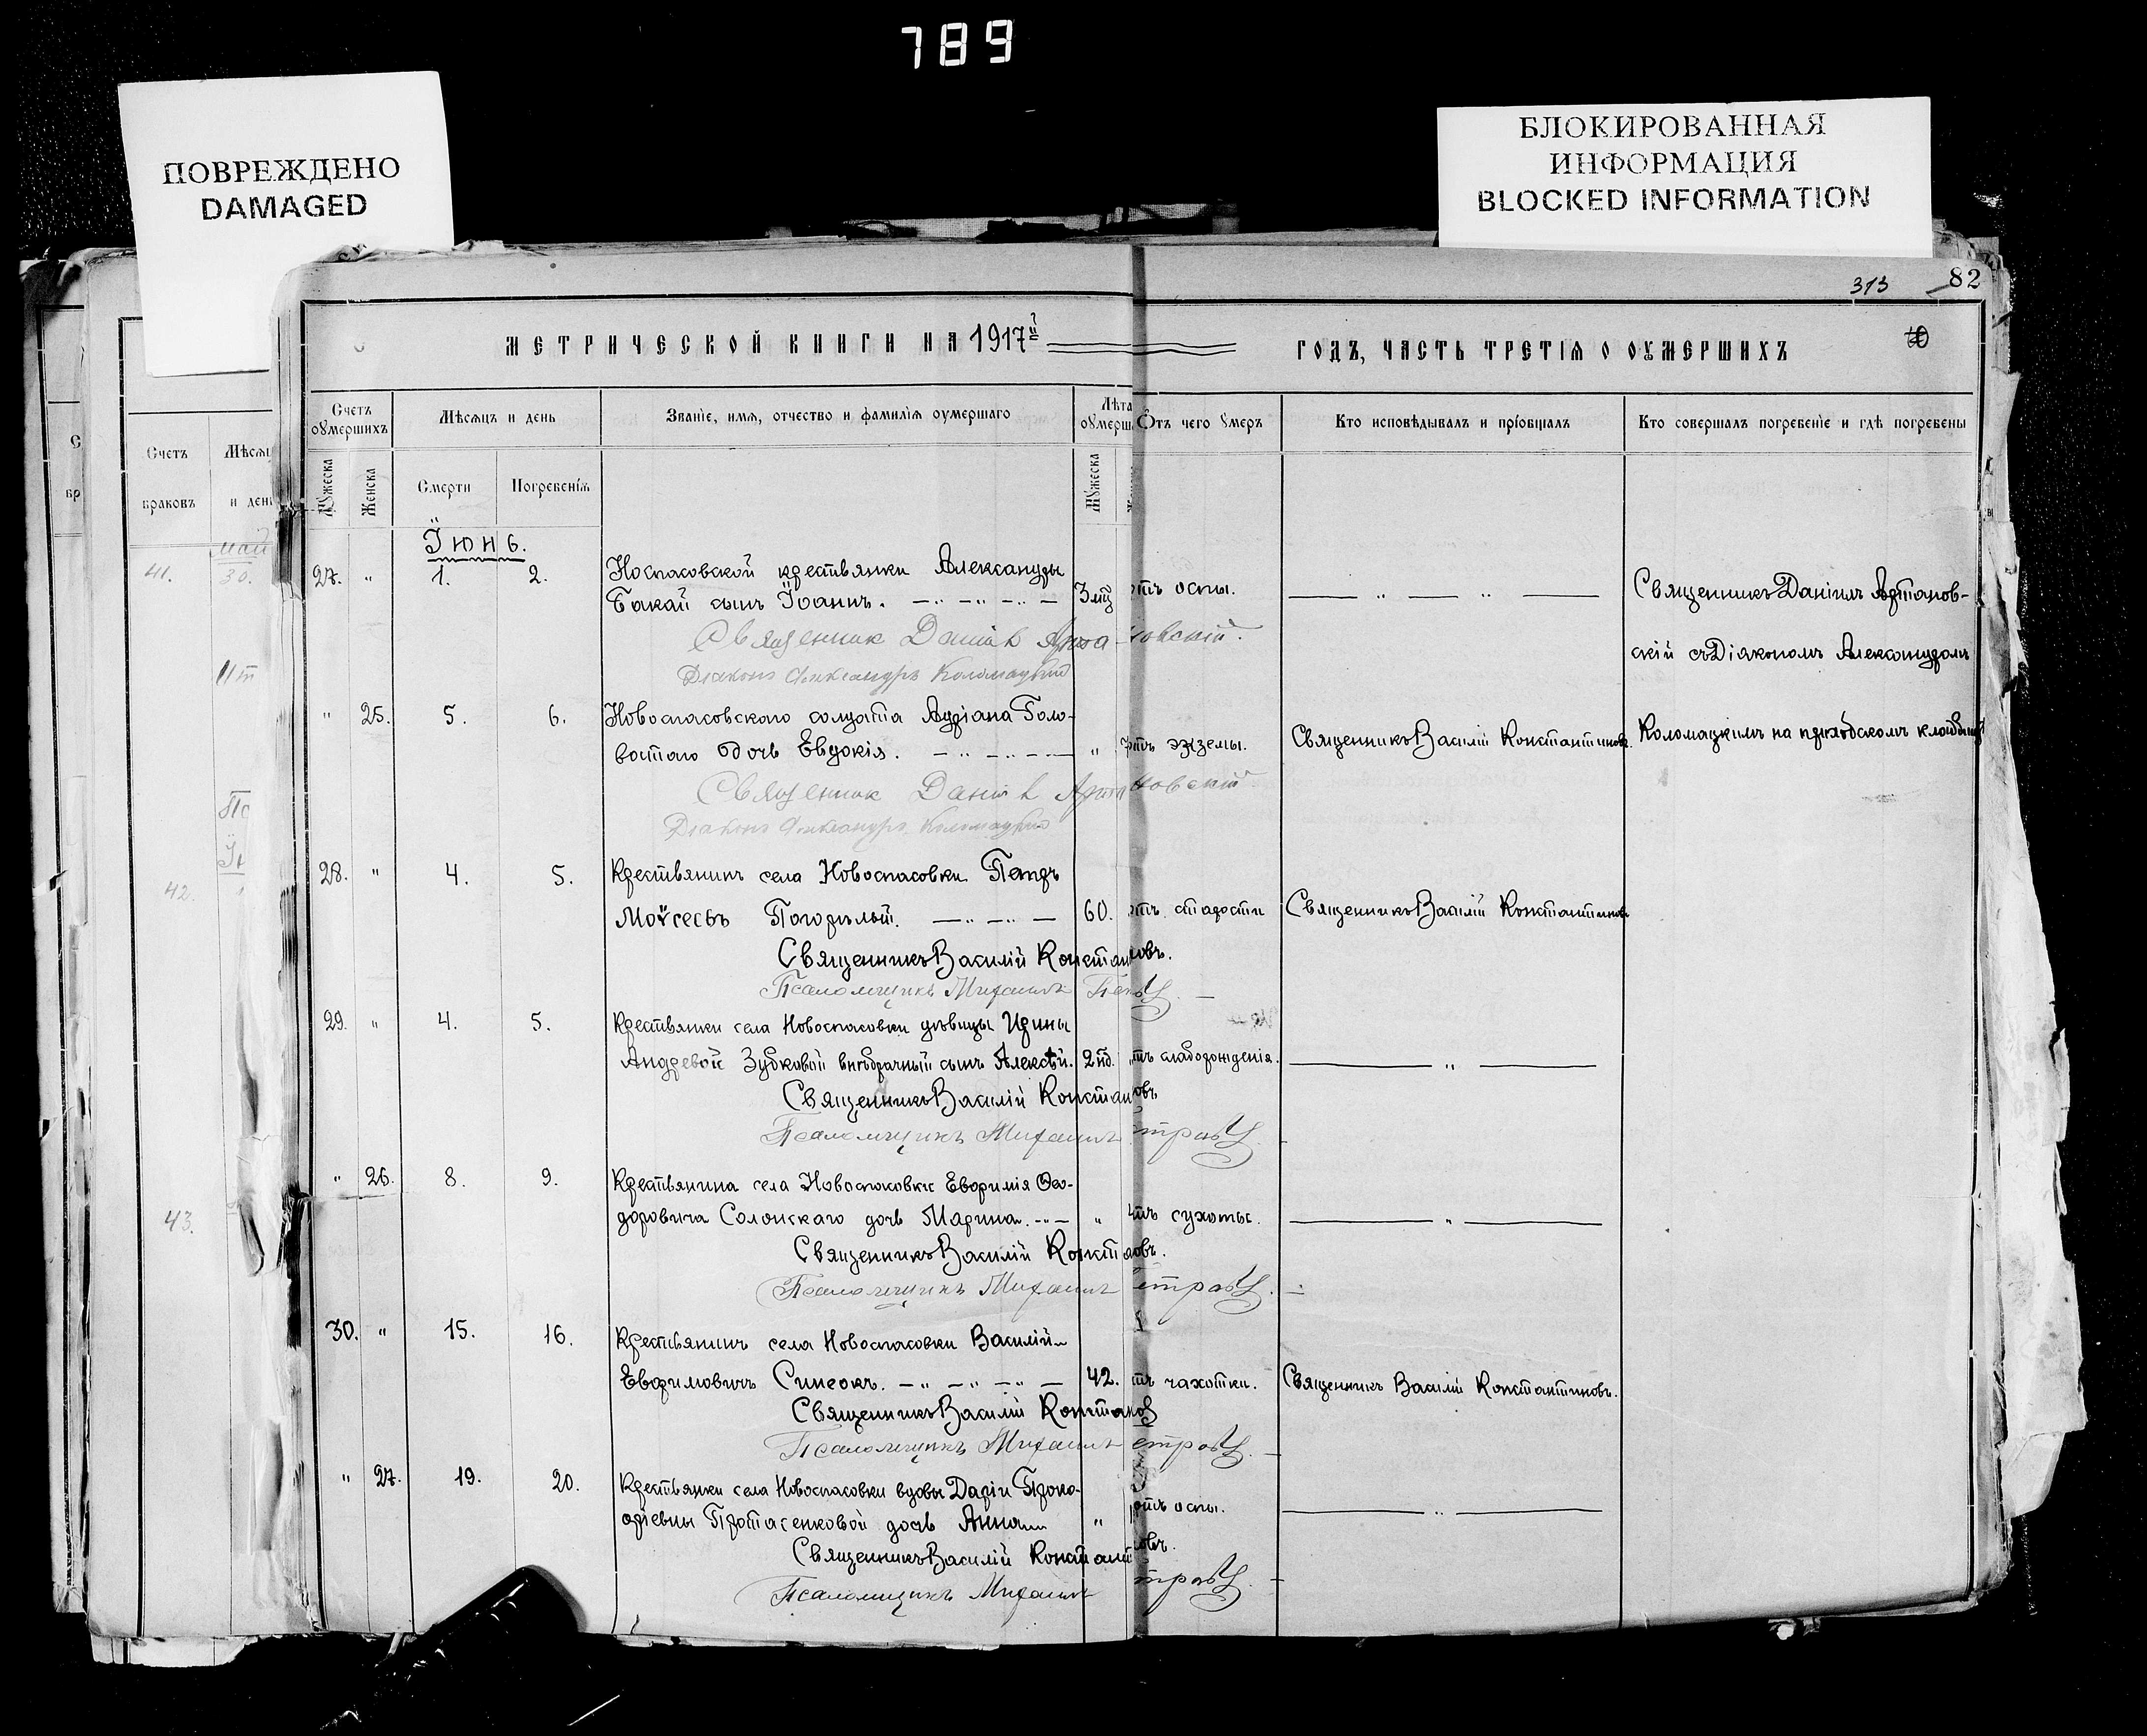 789
ПОВРЕЖДЕНО
DAMAGED
БЛОКИРОВАННАЯ
ИНФОРМАЦИЯ
BLOCKED INFORMATION
313 82
МЕТРИЧЕСКОЙ КНИГИ НА 1917й ГОДЪ, ЧАСТЬ ТРЕТІЯ О ОУМЕРШИХЪ
Счетъ браковъ
Мѣсяц и ден
Счетъ оумершихъ
Мѣсяцъ и день
Званіе, имя, отчество и фамилія оумершаго
Лѣта оумерш
Отъ чего умеръ
Кто исповѣдывалъ и пріобщалъ
Кто совершалъ погребеніе и гдѣ погребены
Мужеска
Женска
Смерти
Погребенія
Мужеска
май
41. 30.
42.
43.
Іюнь.
27. " 1. 2. Носпасовской крестьянки Александры
Бакай сынъ Іоаннъ. 3 мц отъ оспы. Священникъ Даніилъ Артанов-
Священник Даніил Артановскій.
скій съ Діакономъ Александромъ
Діаконъ Александръ Коломацкий
" 25. 5. 6. Новоспасовскаго солдата Адріана Голо-
ватаго дочь Евдокія. " отъ экземы. Священникъ Василій Константиновъ. Коломацкимъ на приходскомъ кладбищѣ
Священник Даніил Артановскій
Діаконъ Александръ Коломацкий
28. " 4. 5. Крестьянинъ села Новоспасовки Петръ
Моѵсеевъ Погорѣлый. 60. отъ старости Священникъ Василій Константиновъ
Священникъ Василій Констан овъ.
Псаломщикъ Михаилъ
29. " 4. 5. Крестьянки села Новоспасовки дѣвицы Ирины
Андреевой Зубковой внѣбрачный сынъ Алексѣй. 2 нд. отъ слаборожденія. "
Священникъ Василій Констан овъ
Псаломщикъ Михаилъ
" 26. 8. 9. Крестьянина села Новоспасовки Евфимія Ѳео-
доровича Солонскаго дочь Марина. " отъ сухоты. "
Священникъ Василій Конст овъ.
Псаломщикъ Михаилъ
30. " 15. 16. Крестьянинъ села Новоспасовки Василій
Евфимовичъ Синеокъ. 42. отъ чахотки. Священникъ Василій Константиновъ.
Священникъ Василій Констан
Псаломщикъ Михаилъ
" 27. 19. 20. Крестьянки села Новоспасовки вдовы Даріи Проко-
фіевны Протасенковой дочь Анна " отъ оспы. "
Священникъ Василій Констант овъ.
Псаломщикъ Михаилъ